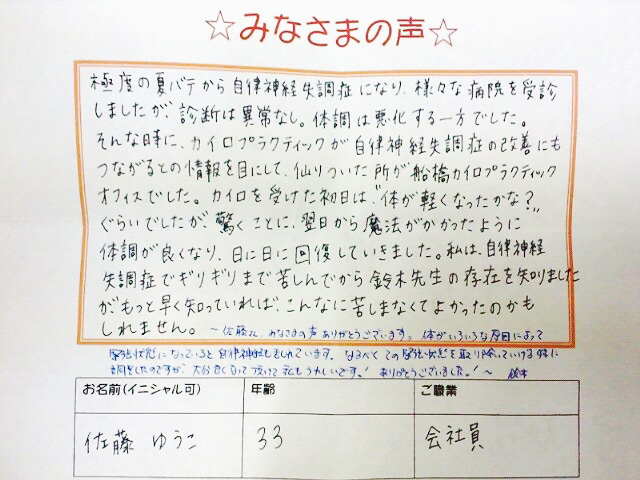 ☆みなさまの声☆
極度の夏バテから自律神経失調症になり、様々な病院を受診
しましたが、診断は異常なし。体調は悪化する一方でした。
そんな時に、カイロプラクティックが自律神経失調症の改善にも
つながるとの情報を目にして、辿りついた所が船橋カイロプラクティック
オフィスでした。カイロを受けた初日は、“体が軽くなったかな?„
ぐらいでしたが、驚くことに、翌日から魔法がかかったように
体調が良くなり、日に日に回復していきました。私は、自律神経
失調症でギリギリまで苦しんでから鈴木先生の存在を知りました
が、もっと早く知っていれば、こんなに苦しまなくてよかったのかも
しれません。
～佐藤さん、みなさまの声ありがとうございます。体がいろいろな原因によって
緊張状態になっていると自律神経も
なるべくその緊張状態を取り除いていける様に
ありがとうございました!～ 鈴木
お名前(イニシャル可) 年齢 ご職業
佐藤 ゆうこ 33 会社員